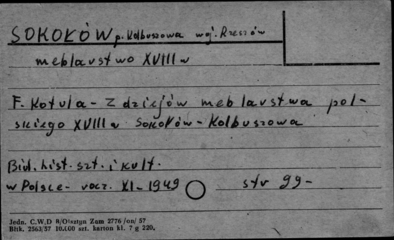 SOKOŁÓW p. Kolbuszowa woj. Rzeszów
meblarstwo XVIII w
F. Kotula - Z dziejów meblarstwa pol-
skiego XVIII w Sokołów - Kolbuszowa
Biul. hist. szt. i kult.
w Polsce - rocz. XI - 1949 str 99 -
Jedn. C.W.D 8/Olsztyn Zam 2776/an/57
Bltk. 2563/57 10.000 szt. karton kl. 7 g 220,